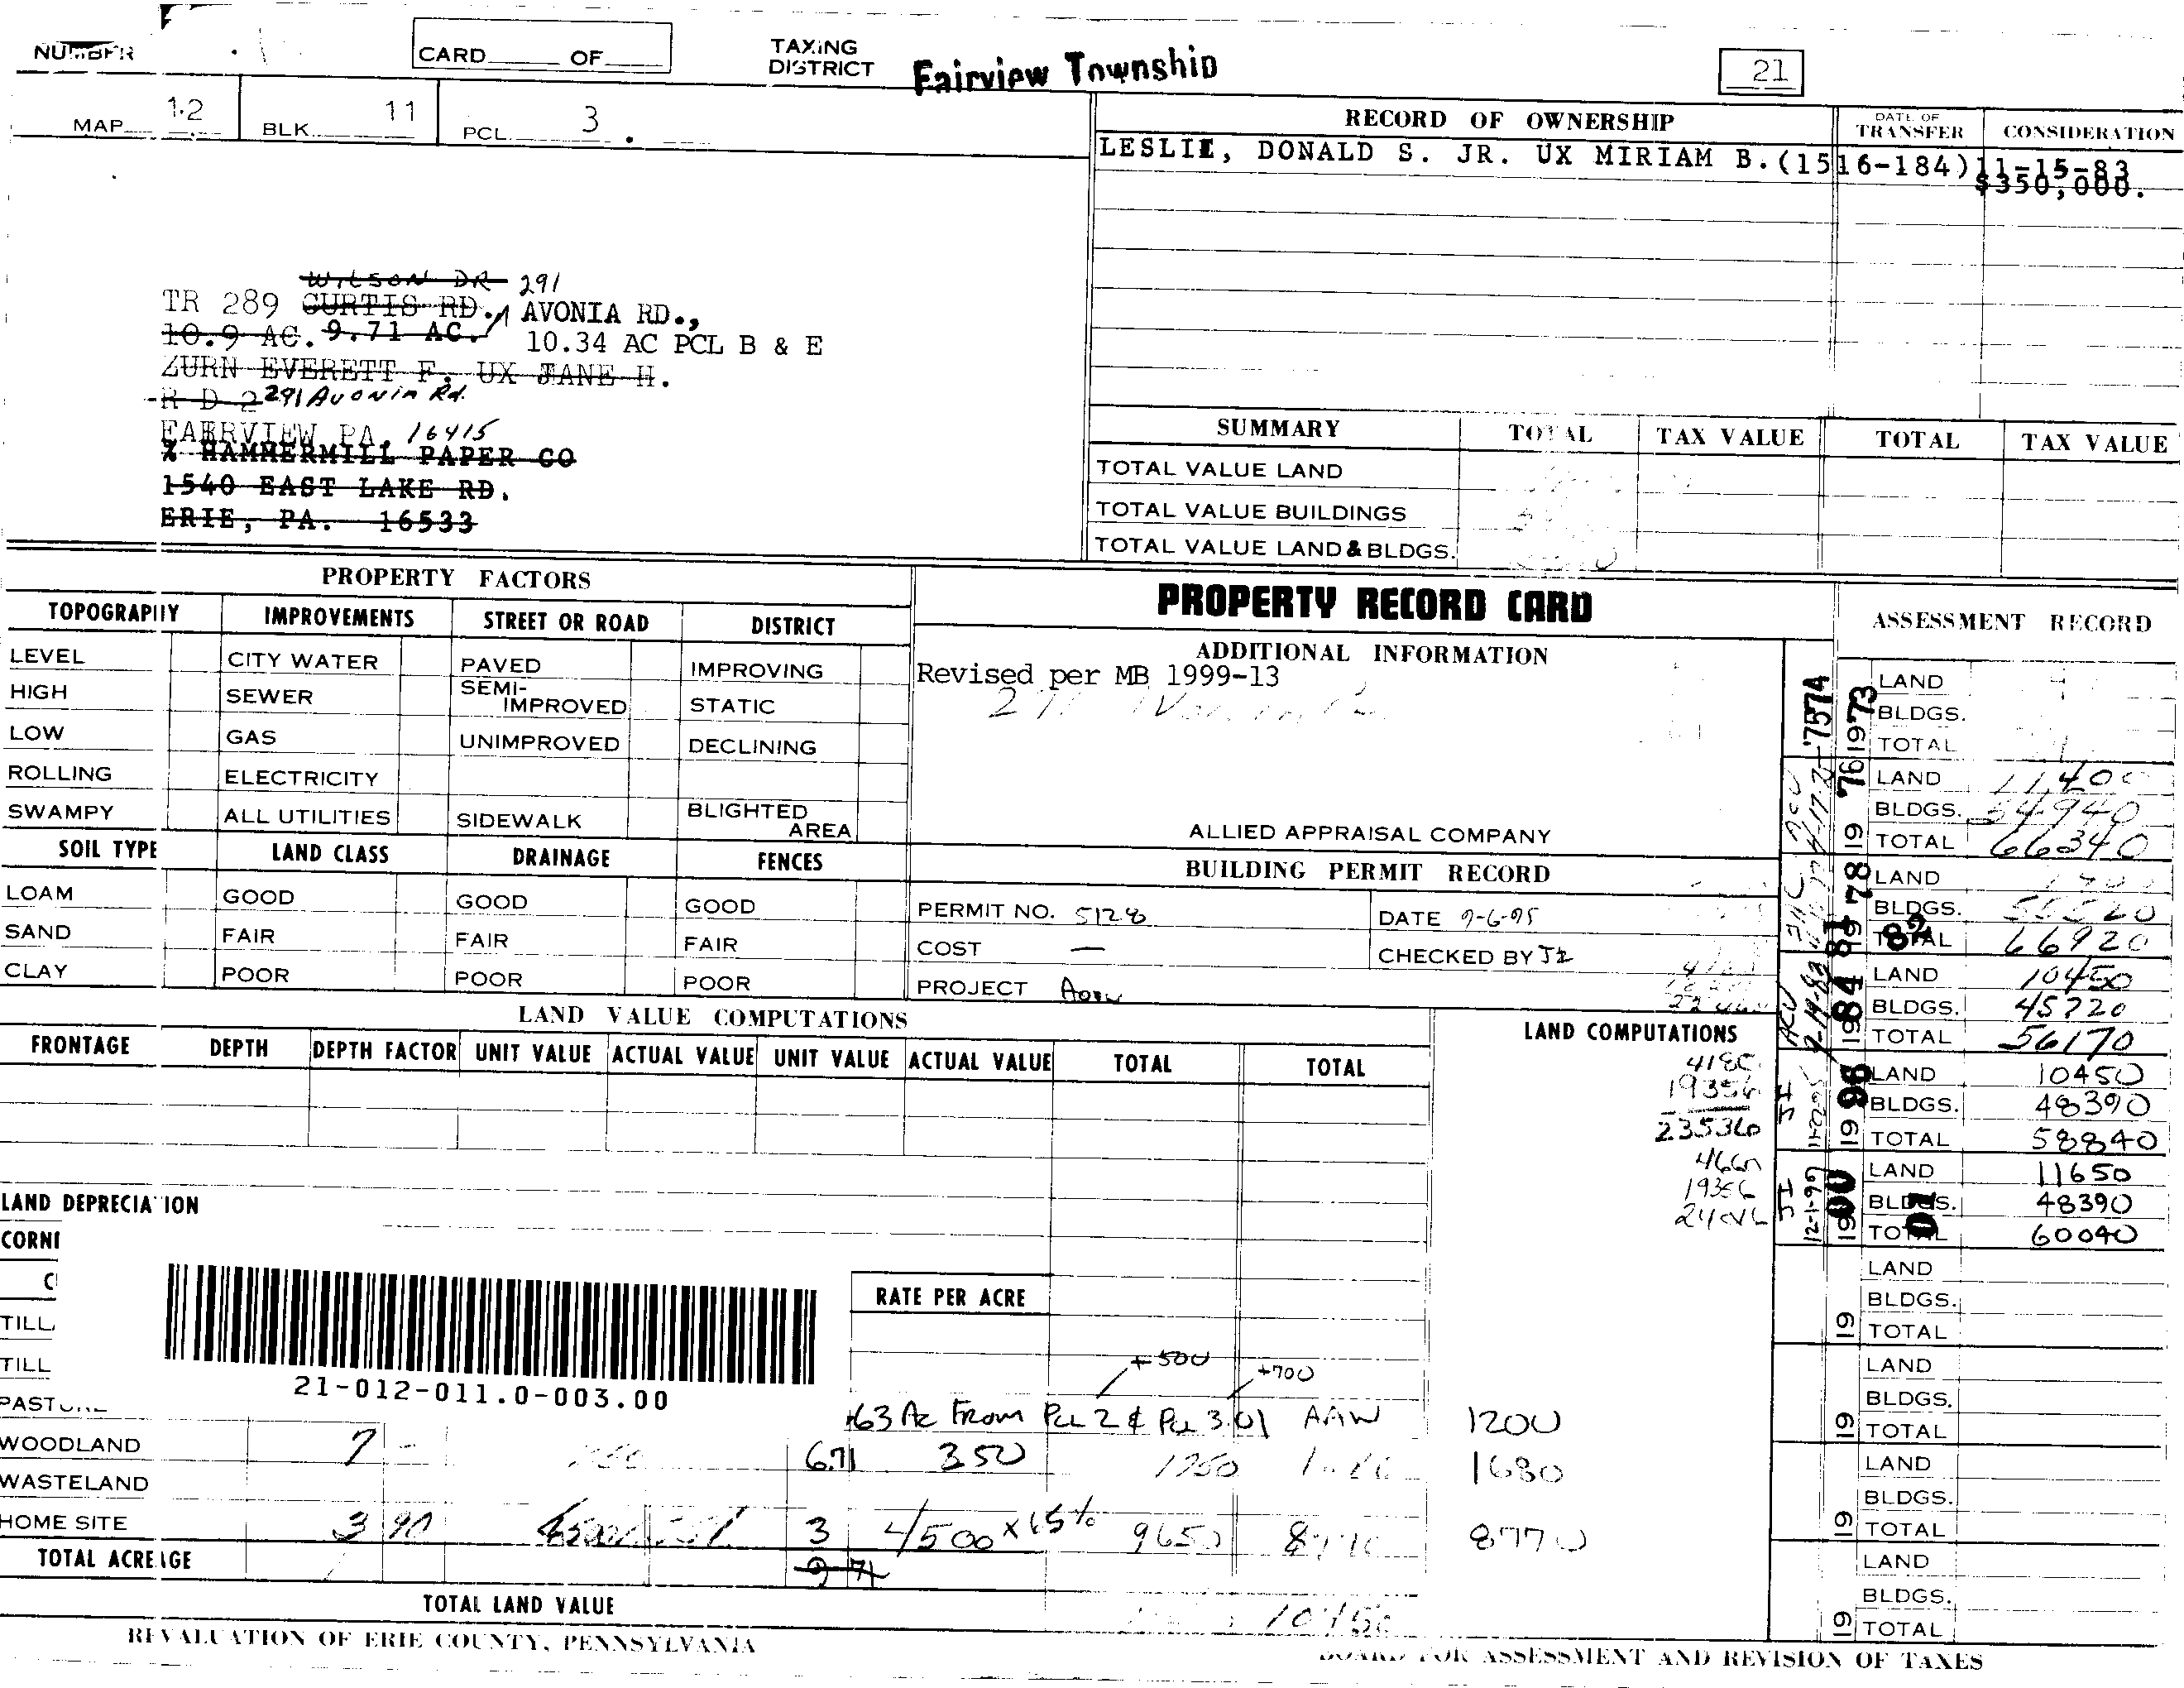 NUMBER
CARD OF
TAXING DISTRICT Fairview Township
21
MAP 12 BLK. 11 PCL. 3
RECORD OF OWNERSHIP DATE OF TRANSFER CONSIDERATION
LESLIE, DONALD S. JR. UX MIRIAM B.(1516-184)11-15-83
$350,000.
WILSON DR 291
TR 289 CURTIS RD. AVONIA RD.,
10.9 AC. 9.71 AC. 10.34 AC PCL B & E
ZURN EVERETT F. UX JANE H.
R D 2 291 Avonia Rd.
FAIRVIEW PA. 16415
% HAMMERMILL PAPER CO
1540 EAST LAKE RD.
ERIE, PA. 16533
SUMMARY TOTAL TAX VALUE TOTAL TAX VALUE
TOTAL VALUE LAND
TOTAL VALUE BUILDINGS
TOTAL VALUE LAND & BLDGS.
PROPERTY FACTORS
TOPOGRAPHY IMPROVEMENTS STREET OR ROAD DISTRICT
LEVEL CITY WATER PAVED IMPROVING
HIGH SEWER SEMI-IMPROVED STATIC
LOW GAS UNIMPROVED DECLINING
ROLLING ELECTRICITY
SWAMPY ALL UTILITIES SIDEWALK BLIGHTED AREA
SOIL TYPE LAND CLASS DRAINAGE FENCES
LOAM GOOD GOOD GOOD
SAND FAIR FAIR FAIR
CLAY POOR POOR POOR
PROPERTY RECORD CARD
ADDITIONAL INFORMATION
Revised per MB 1999-13
ALLIED APPRAISAL COMPANY
BUILDING PERMIT RECORD
PERMIT NO. 5128 DATE 9-6-95
COST — CHECKED BY JI
PROJECT
ASSESSMENT RECORD
1973 LAND
BLDGS.
TOTAL
19 76 LAND 11,400
BLDGS. 54940
TOTAL 66340
19 78 LAND
BLDGS. 55520
TOTAL 66920
81 82
1984 LAND 10450
BLDGS. 45720
TOTAL 56170
19 96 LAND 10450
BLDGS. 48390
TOTAL 58840
19 00 01 LAND 11650
BLDGS. 48390
TOTAL 60040
JI 12-1-99
19 LAND
BLDGS.
TOTAL
19 LAND
BLDGS.
TOTAL
19 LAND
BLDGS.
TOTAL
19 LAND
BLDGS.
TOTAL
LAND VALUE COMPUTATIONS
FRONTAGE DEPTH DEPTH FACTOR UNIT VALUE ACTUAL VALUE UNIT VALUE ACTUAL VALUE TOTAL TOTAL
LAND COMPUTATIONS
4180
19356
23536
4660
19356
LAND DEPRECIATION
RATE PER ACRE
21-012-011.0-003.00
+500 +700
.63 Ac From PCL 2 & PCL 3.01 AAW 1200
WOODLAND 7 6.71 350 1750 1680
WASTELAND
HOME SITE 3 90 3 4500 x 65% 9650 8770
TOTAL ACREAGE 9 71
TOTAL LAND VALUE 10450
REVALUATION OF ERIE COUNTY, PENNSYLVANIA
BOARD FOR ASSESSMENT AND REVISION OF TAXES